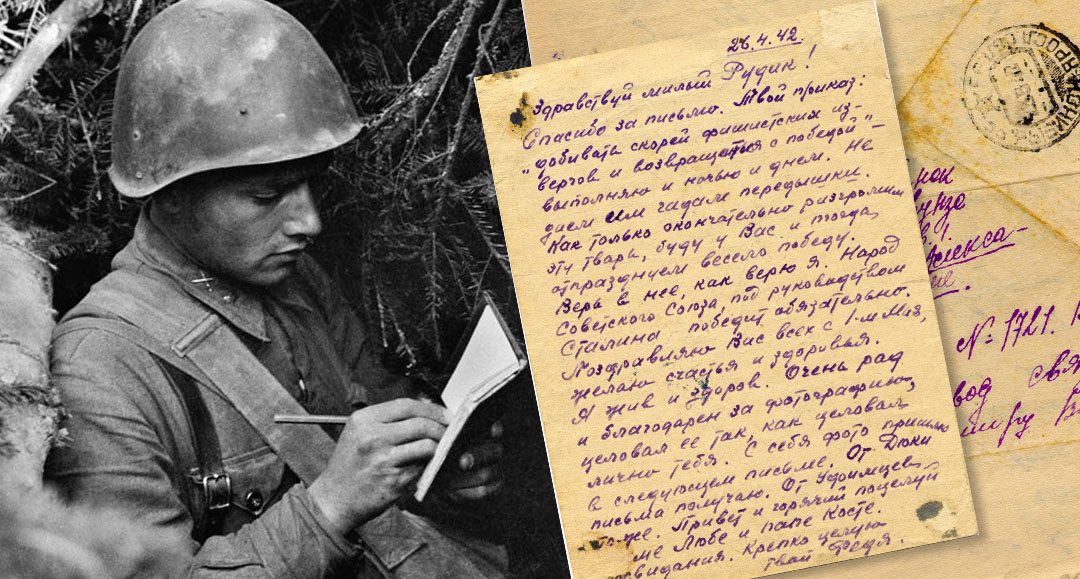 26.4.42.
Здравствуй милый Рудик!
Спасибо за письмо. Твой приказ:
"добивать скорей фашистских из-
вергов и возвращаться с победой" –
выполняю и ночью и днем. Не
даем им гадам передышки.
Как только окончательно разгромим
эту тварь, буду у Вас и тогда,
отпразднуем весело победу.
Верь в нее, как верю я. Народ
Советского Союза, под руководством
Сталина – победит обязательно.
Поздравляю Вас всех с 1-м Мая,
желаю счастья и здоровья.
Я жив и здоров. Очень рад
и благодарен за фотографию,
целовал ее так, как целовал
лично тебя. С себя фото пришлю
в следующем письме. От Дюки
письма получаю. От Удоимцев
тоже. Привет и горячий поцелуй
ме Любе и папе Косте.
свидания. Крепко целую
твой Федя.
№ 1721.
вод свя